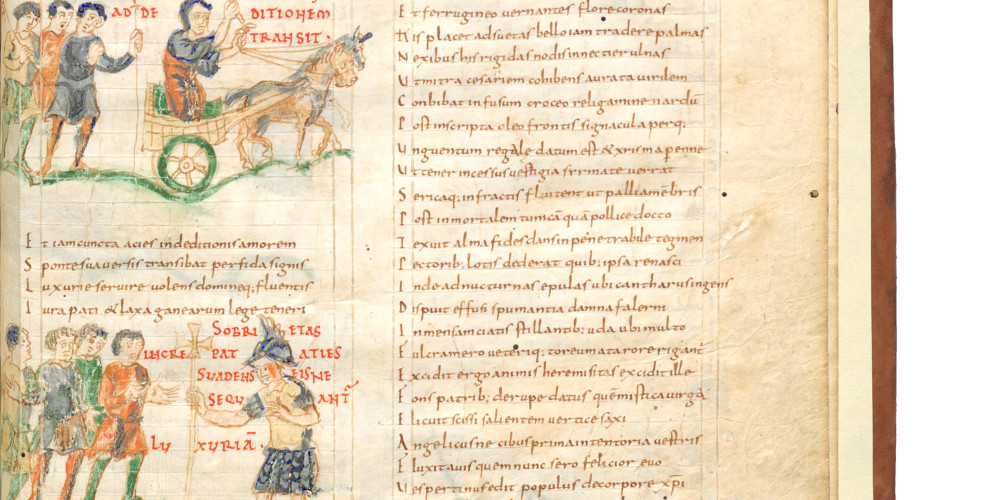 AD DE DITIONEM
TRANSIT.
Et iam cuncta acies indeditionis amorem
Sponte sua versis transibat perfida signis
Luxurie servire volens domineq; fluentis
Iura pati & laxa ganearum lege teneri
SOBRI ETAS
INCRE PAT ATIES
SUADENS EIS NE
SEQU ANT̄
LU XURIĀ.
Et ferrugineo vernantes flore coronas
His placet adsuetas bello iam tradere palmas
Nexibus his rigidas nodis innectier ulnas
Ut mitra cesariem cohibens aurata virilem
Conbibat infusum croceo religamine nardū
Post inscripta oleo frontis signacula perq;
Unguentum regale datum est & xrisma perenne
Ut tener incessus vestigia sirmate verrat
Sericaq; infractis fluitent ut pallia mēbris
Post inmortalem tunicā quā pollice docto
Texuit alma fides dans inpenetrabile tegmen
Pectorib; lotis dederat quib; ipsa renasci
Inde ad nocturnas epulas ubi cantharus ingens
Dispuit effusi spumantia damna falerni
In mensam ciatis stillantib; uda ubi multo
Fulcra mero veteriq; toreumata rore rigant̄
Excidit ergo animis heremi sitas excidit ille
Fons patrib; de rupe datus quē mistica virga
Elicuit scissi salientem vertice saxi
Angelicusne cibus prima in tentoria vestris
Fluxit avis quem nunc sero felicior evo
Vespertinus edit populus de corpore xpi